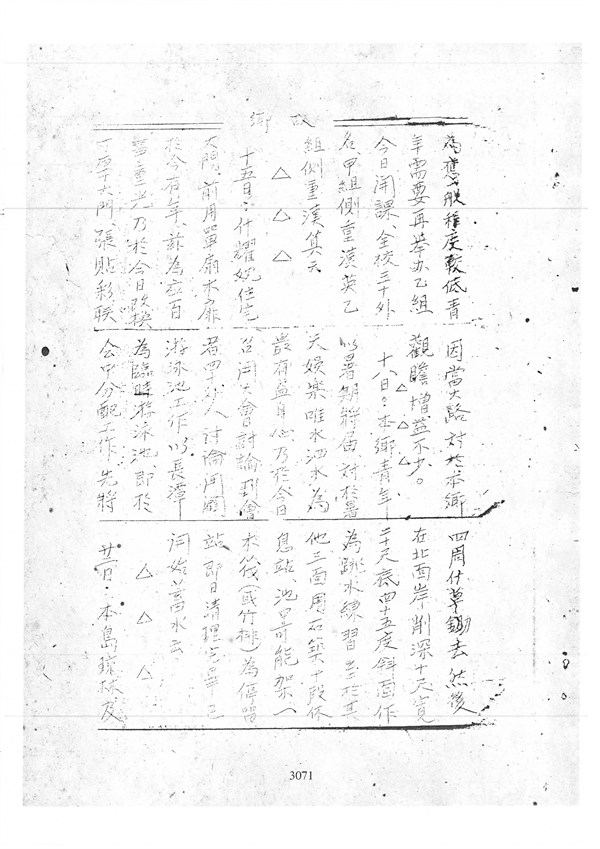 故鄉
為應般程度較低青
年需要再舉办乙組
今日開課、全校三十外
名甲組側重漢英乙
組側重漢算云
△ △ △
十五日：什耀 住宅
大門前用單扇木扉
於今有年、茲為
重光乃於今日改換
大門、張貼彩联
因當大路對於本鄉
觀瞻增益不少。
△ △ △
十八日：本鄉青年
以暑期將届對於暑
天娛樂唯水泗水為
最有益身心乃於今日
召開大會討論到會
者四十 人討論開闢
游泳池工作以長潭
為臨時游泳池即於
会中分配工作、先將
四周什草鋤去然後
在北西岸削深十尺寬
二十尺底四十五度斜面作
為跳水練習 於其
他三面用石築十段休
息站、池中可能架一
木筏(或竹排)為停留
站即日清理完畢已
開始蓄水云
△ △ △
廿一日：本島球林
3071